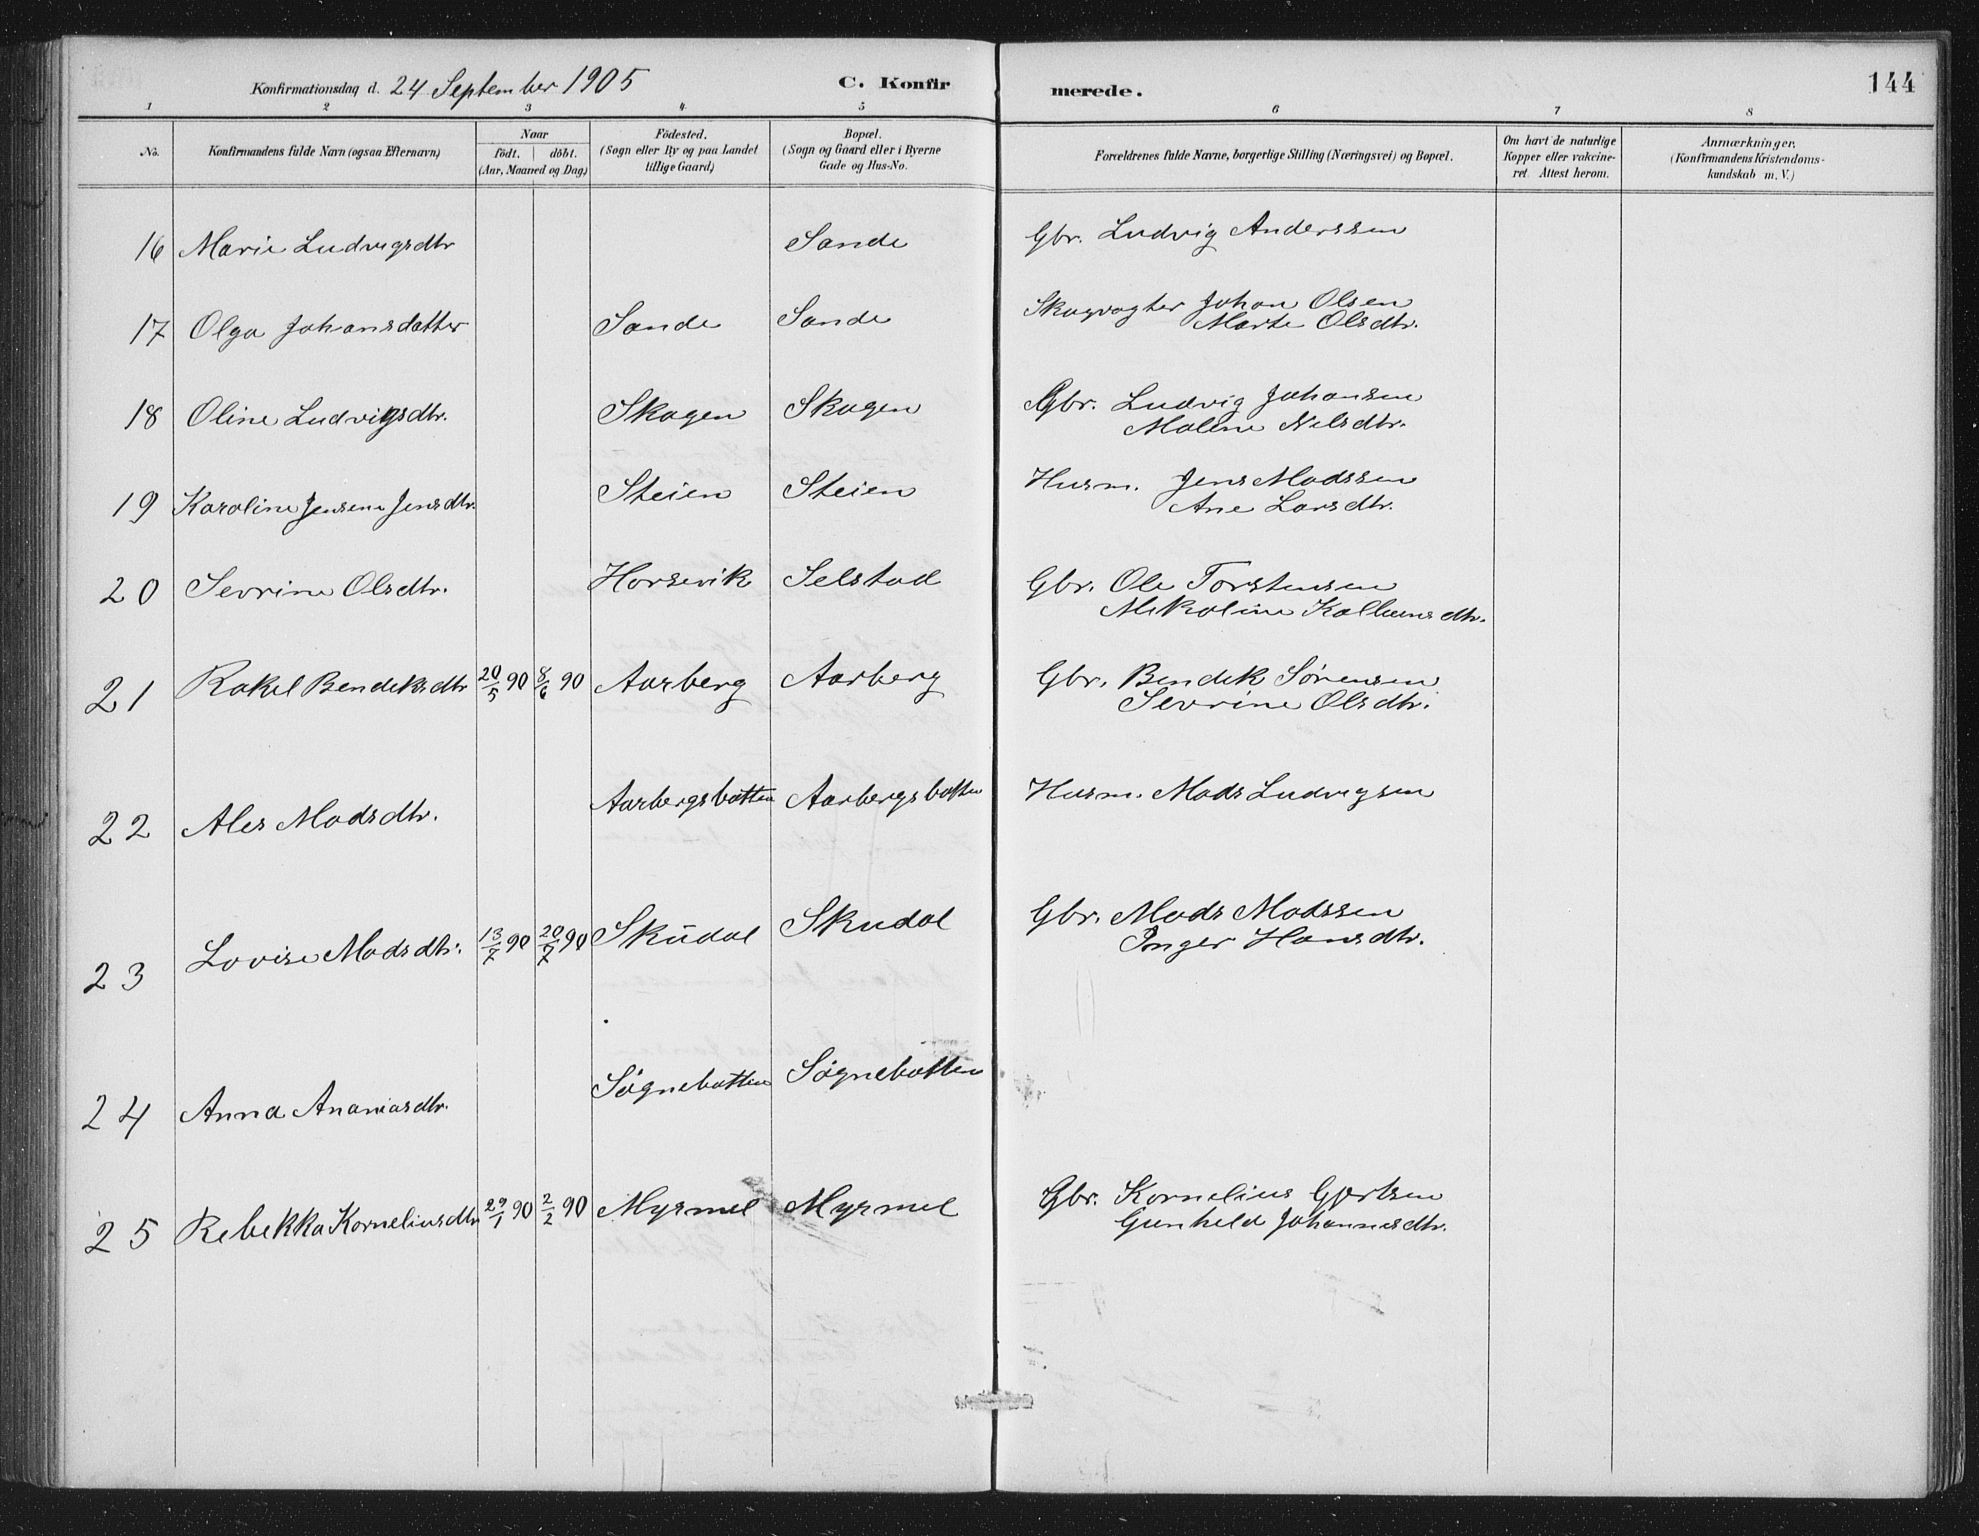 Konfirmationsdag d. 24 September 1905 C. Konfirmerede. 144
1 2 3 4 5 6 7 8
No. Konfirmandens fulde Navn (ogsaa Efternavn) Naar födt. döbt. (Aar, Maaned og Dag) Födested. (Sogn eller By og paa Landet tillige Gaard) Bopæl. (Sogn og Gaard eller i Byerne Gade og Hus-No. Forældrenes fulde Navne, borgerlige Stilling (Næringsvei) og Bopæl. Om havt de naturlige Kopper eller vakcineret. Attest herom. Anmærkninger. (Konfirmandens Kristendomskundskab m. V.)
16 Marie Ludvigsdtr Sande Gbr. Ludvig Anderssen
17 Olga Johansdatter Sande Sande Skogvogter Johan Olsen
Marte Olsdtr.
18 Oline Ludvigsdtr. Skogen Skogen Gbr. Ludvig Johansen
Maline Nilsdtr.
19 Karoline Jensine Jensdtr. Steien Steien Husm. Jens Madssen
Ane Larsdtr.
20 Sevrine Olsdtr. Horsevik Selstad Gbr. Ole Torstensen
Nikoline Kolbensdtr.
21 Rakel Bendiksdtr 20/5 90 8/6 90 Aarberg Aarberg Gbr. Bendik Sørensen
Sevrine Olsdtr.
22 Ales Madsdtr. Aarbergsbotten Aarbergsbotten Husm. Mads Ludvigsen
23 Lovise Madsdtr. 13/7 90 20/7 90 Skudal Skudal Gbr. Mads Madssen
Inger Hansdtr.
24 Anna Ananiasdtr. Søgnebotten Søgnebotten
25 Rebekka Korneliusdtr 29/1 90 2/2 90 Myrmel Myrmel Gbr. Kornelius Gjertsen
Gunhild Johannesdtr.